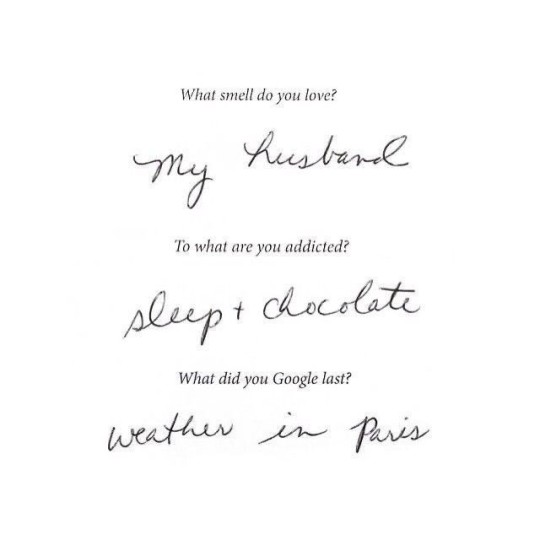 What smell do you love?
My husband
To what are you addicted?
sleep + chocolate
What did you Google last?
weather in Paris